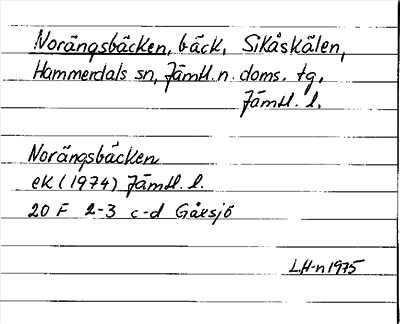 Norängsbäcken, bäck, Sikåskälen,
Hammerdals sn, Jämtl. n. doms. tg,
Jämtl. l.
Norängsbäcken
ek (1974) Jämtl. l.
20 F 2-3 c-d Gåxsjö
L.H-n 1975